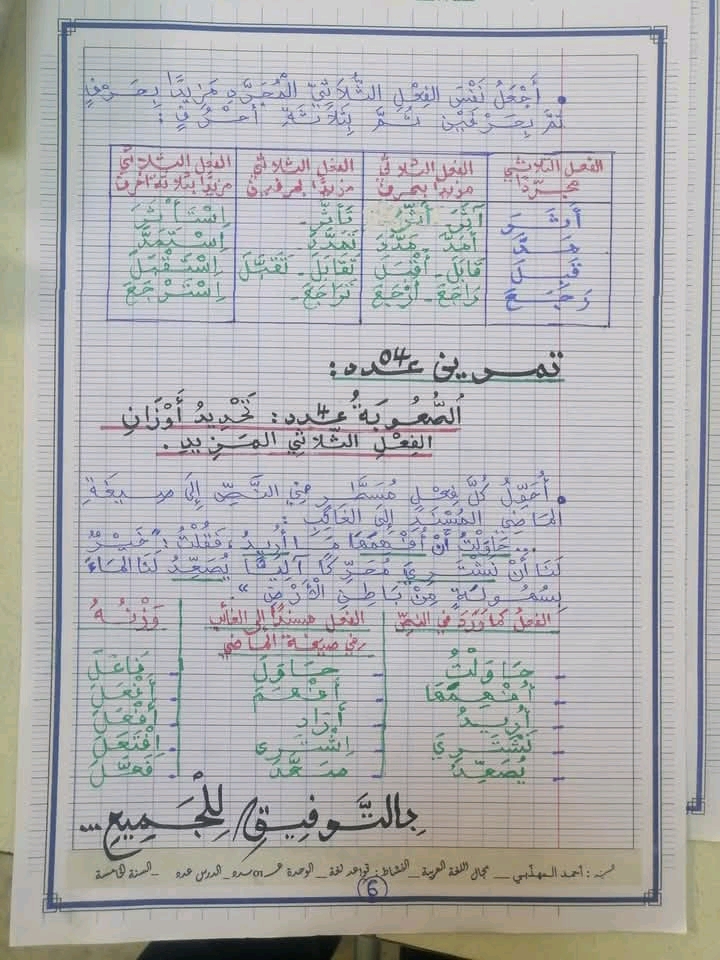 أَجْعَلُ نَفْسَ الفِعْلِ الثُّلَاثِيِّ الْمُجَرَّدِ مَزِيدًا بِحَرْفٍ
ثُمَّ بِحَرْفَيْنِ ثُمَّ بِثَلَاثَةِ أَحْرُفٍ :
الفعل الثلاثي مجرّدًا الفعل الثلاثي مزيدًا بحرف الفعل الثلاثي مزيدًا بحرفين الفعل الثلاثي مزيدًا بثلاثة أحرف
أَثَرَ آثَرَ - أَثَّرَ تَأَثَّرَ - اِسْتَأْثَرَ
مَدَّ أَمَدَّ - مَدَّدَ تَمَدَّدَ - اِسْتَمَدَّ
قَبِلَ قَابَلَ - أَقْبَلَ تَقَابَلَ - تَقَبَّلَ اِسْتَقْبَلَ
رَجَعَ رَاجَعَ - أَرْجَعَ تَرَاجَعَ - اِسْتَرْجَعَ
تمرين عدد 04 :
الصُّعُوبَةُ عدد 4 : تَحْدِيدُ أَوْزَانِ
الفِعْلِ الثّلاثي المَزِيدِ .
أُحَوِّلُ كُلَّ فِعْلٍ مُسَطَّرٍ فِي النَّصِّ إِلَى صِيغَةِ
المَاضِي المُسْنَدِ إِلَى الغَائِبِ :
... حَاوَلْتُ أَنْ أُفْهِمَهَا مَا أُرِيدُ ، فَقُلْتُ : "خَيْرٌ
لَنَا أَنْ نَشْتَرِيَ مُحَرِّكًا آلِيًّا يُصَعِّدُ لَنَا المَاءَ
بِسُهُولَةٍ مِنْ بَاطِنِ الْأَرْضِ ".
الفعلُ كما ورد في النصِّ الفعل مسندًا إلى الغائب في صيغة الماضي وَزْنُهُ
- حَاوَلْتُ - حَاوَلَ - فَاعَلَ
- أُفْهِمَهَا - أَفْهَمَ - أَفْعَلَ
- أُرِيدُ - أَرَادَ - أَفْعَلَ
- نَشْتَرِيَ - اِشْتَرَى - اِفْتَعَلَ
- يُصَعِّدُ - صَعَّدَ - فَعَّلَ
بِالتَّوفِيقِ لِلْجَمِيعِ ...
أحمد المهذبي _ مجال اللغة العربية _ النشاط : قواعد لغة _ الوحدة عدد 01 _ الدرس عدد _ السنة الخامسة
6